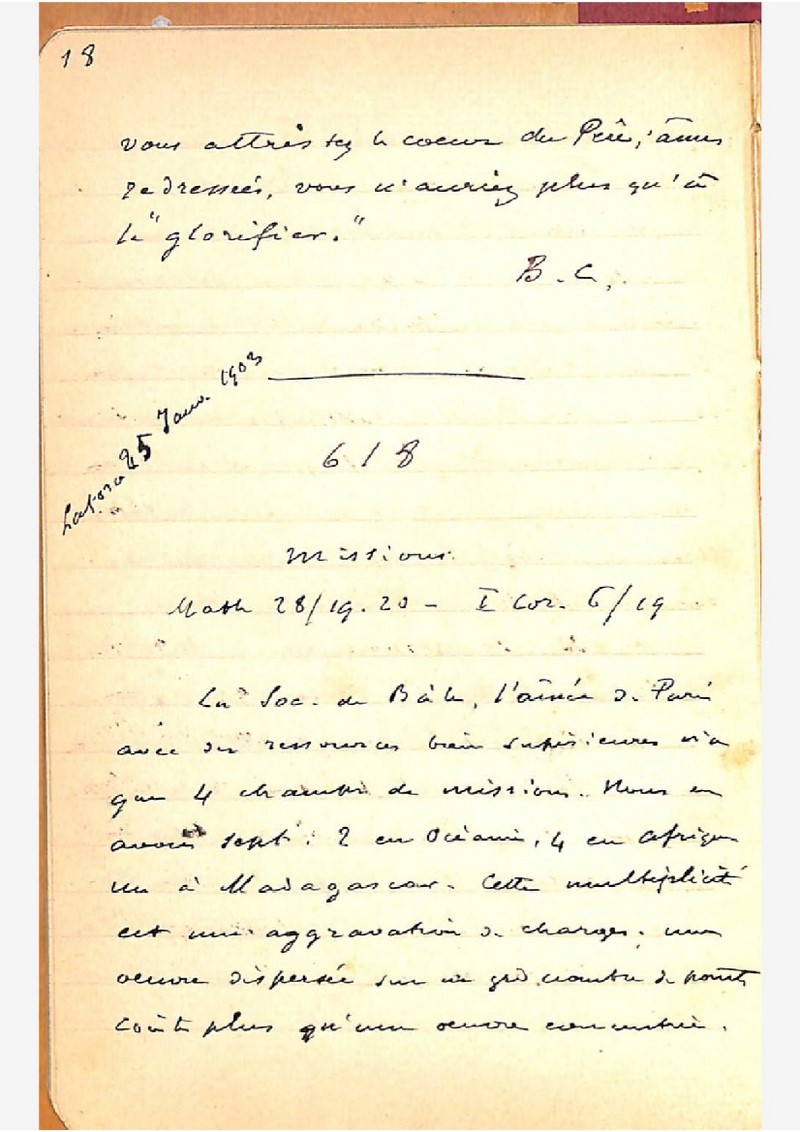 18
vous attristez le coeur du Père; âmes
redressées, vous n'auriez plus qu'à
le "glorifier."
B. C.
25 Janv. 1903
618
Missions
Math 28/19.20 - I Cor. 6/19
La Soc. de Bâle, l'aînée de Paris
avec des ressources bien supérieures n'a
que 4 champs de missions. Nous en
avons sept: 2 en Océanie, 4 en Afrique
un à Madagascar. Cette multiplicité
est une aggravation de charges; une
oeuvre dispersée sur un grd nombre de points
coûte plus qu'une oeuvre concentrée.